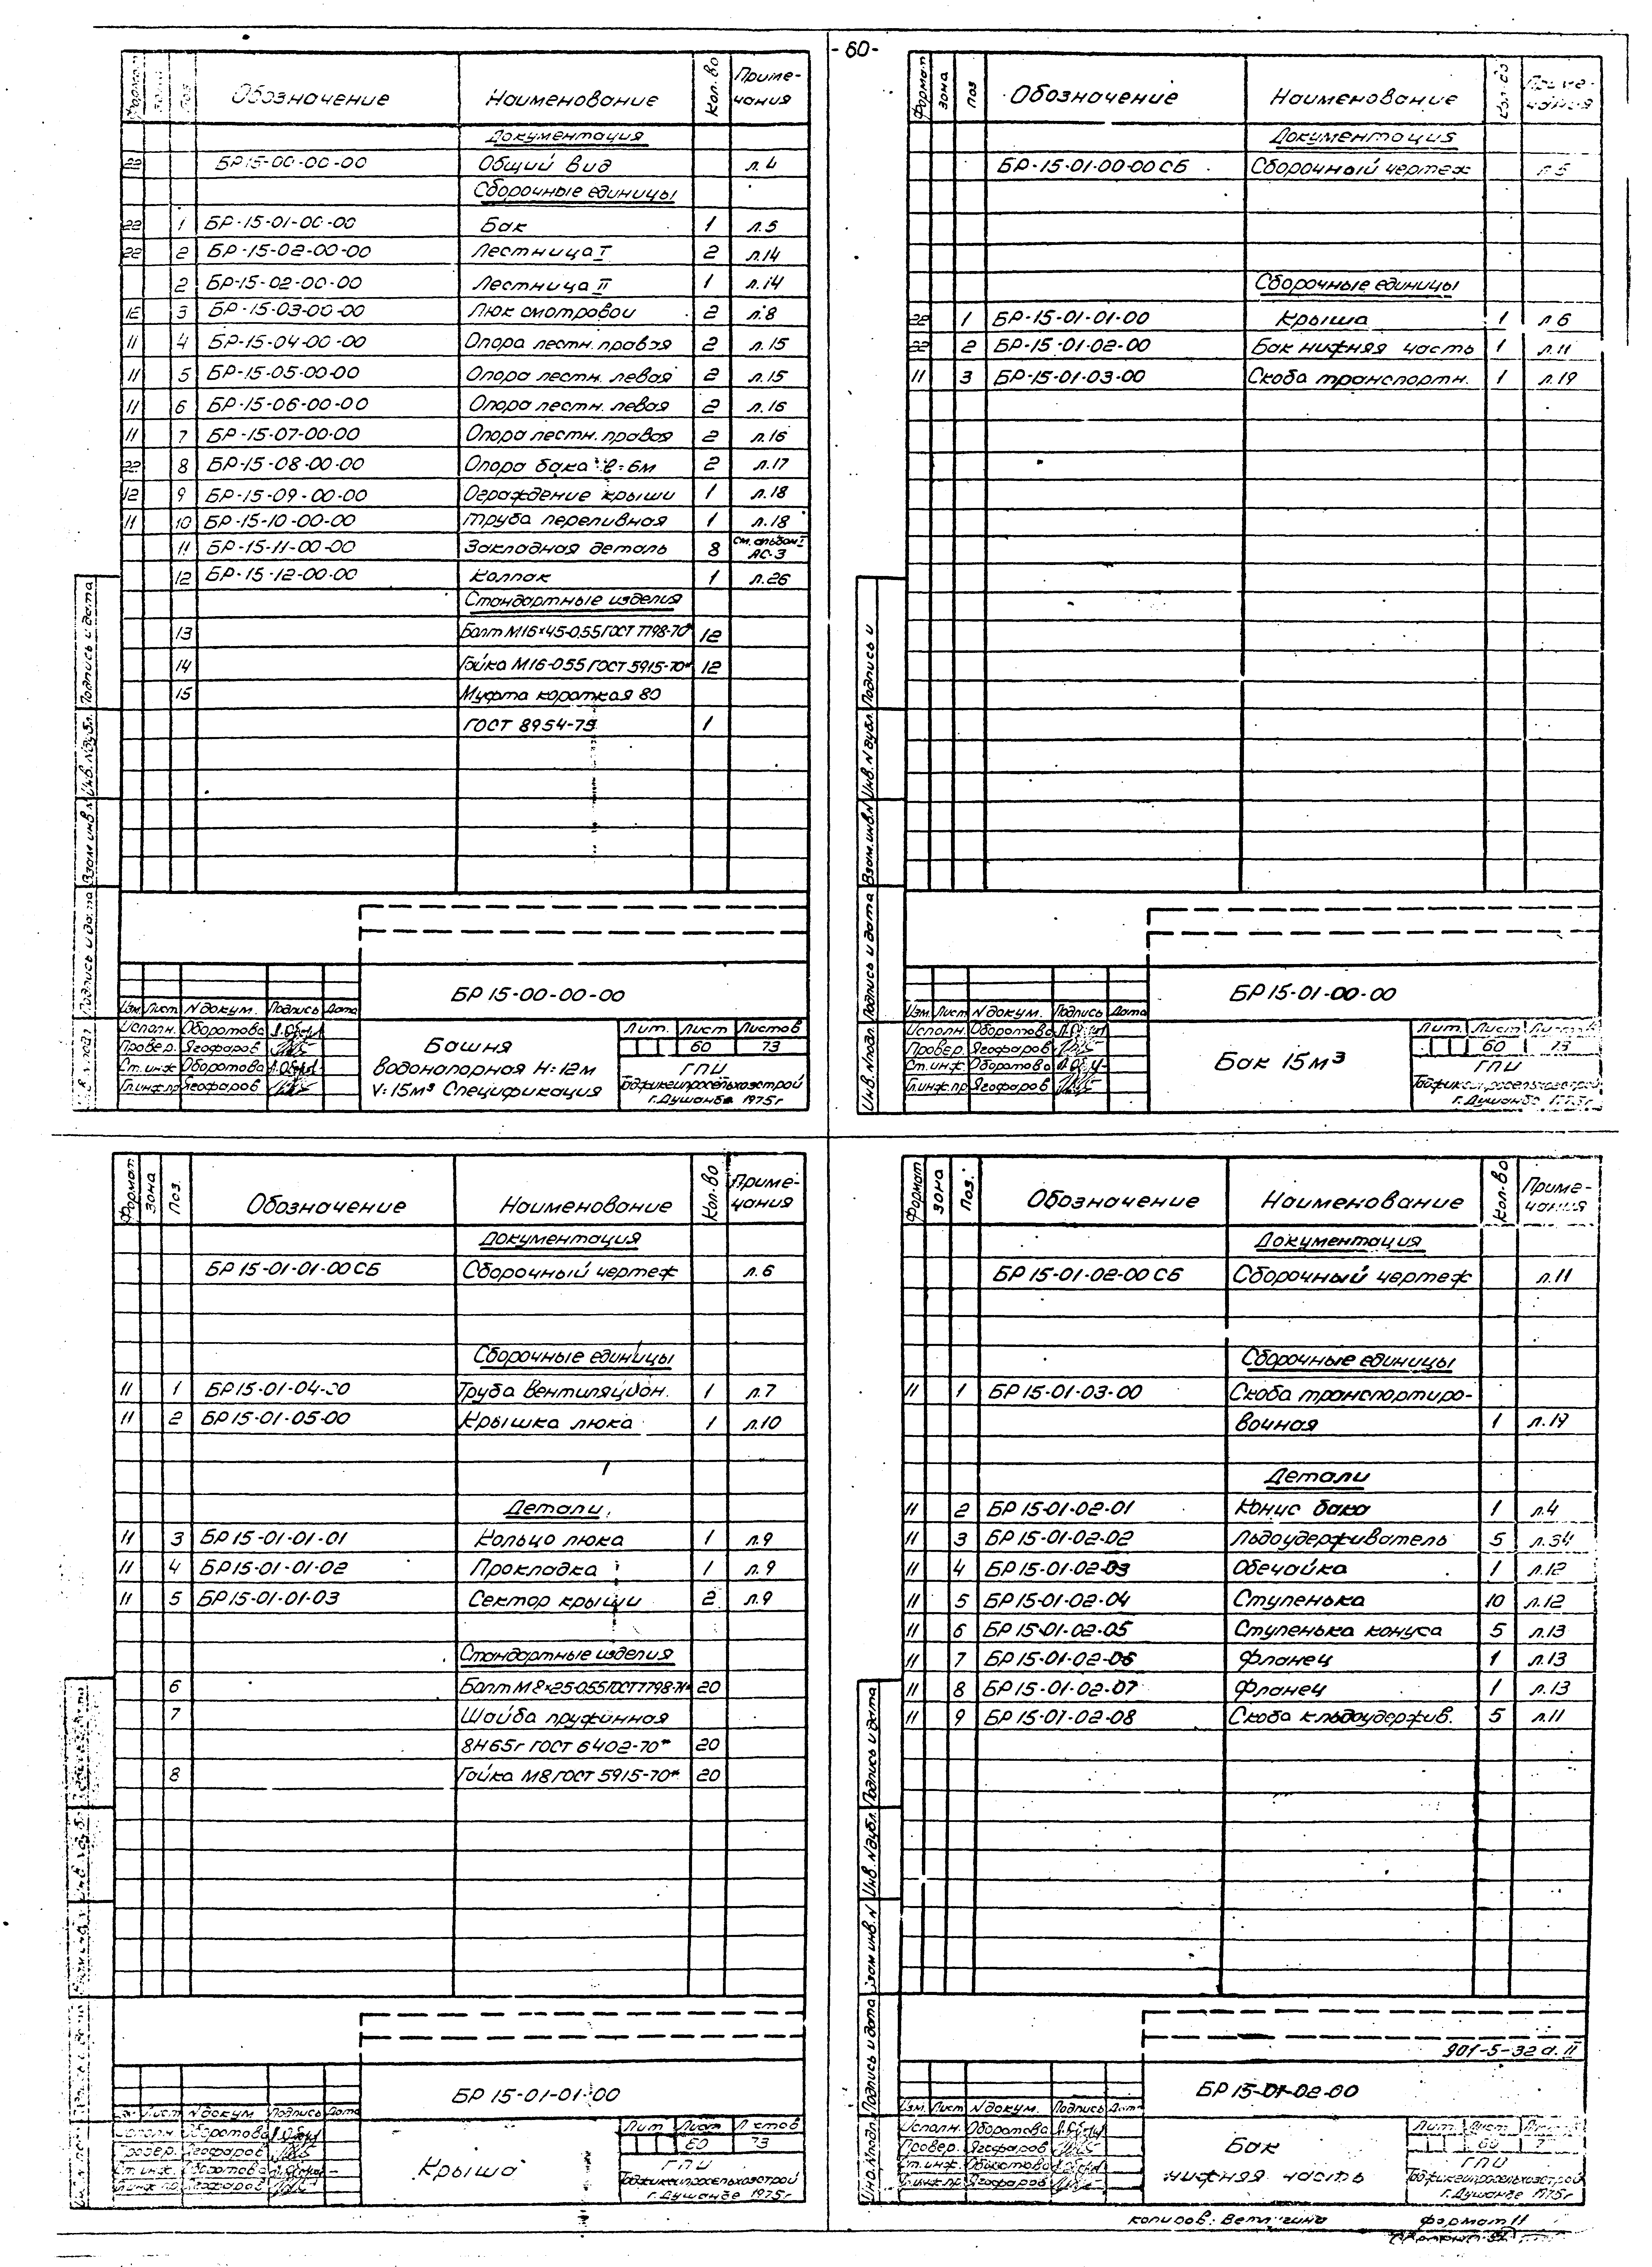 - 60 -
Формат Зона Поз. Обозначение Наименование Кол-во Приме-
чания
Документация
22 БР15-00-00-00 Общий вид л.4
Сборочные единицы
22 1 БР-15-01-00-00 Бак 1 л.5
22 2 БР-15-02-00-00 Лестница I 2 л.14
2 БР-15-02-00-00 Лестница II 1 л.14
12 3 БР-15-03-00-00 Люк смотровой 2 л.8
11 4 БР-15-04-00-00 Опора лестн. правая 2 л.15
11 5 БР-15-05-00-00 Опора лестн. левая 2 л.15
11 6 БР-15-06-00-00 Опора лестн. левая 2 л.16
11 7 БР-15-07-00-00 Опора лестн. правая 2 л.16
22 8 БР-15-08-00-00 Опора бака ℓ=6м 2 л.17
12 9 БР-15-09-00-00 Ограждение крыши 1 л.18
11 10 БР-15-10-00-00 Труба переливная 1 л.18
11 БР-15-11-00-00 Закладная деталь 8 см. альбом I
АС-3
12 БР-15-12-00-00 Колпак 1 л.26
Стандартные изделия
13 Болт М16×45-055 ГОСТ 7798-70* 12
14 Гайка М16-055 ГОСТ 5915-70* 12
15 Муфта короткая 80
ГОСТ 8954-75 1
БР15-00-00-00
Изм. Лист N докум. Подпись Дата
Исполн. Оборотова
Провер. Ягофаров
Ст.инж. Оборотова
Гл.инж.пр Ягофаров
Башня
водонапорная Н=12м
V=15м³ Спецификация
Лит. Лист Листов
60 73
ГПИ
Таджикгипросельхозстрой
г.Душанбе 1975г
Подпись и дата
Инв. N дубл.
Взам.инв.N
Подпись и дата
Формат Зона Поз Обозначение Наименование Кол-во Приме-
чания
Документация
БР-15-01-00-00 СБ Сборочный чертеж л.5
Сборочные единицы
22 1 БР-15-01-01-00 Крыша 1 л.6
22 2 БР-15-01-02-00 Бак нижняя часть 1 л.11
11 3 БР-15-01-03-00 Скоба транспортн. 1 л.19
БР15-01-00-00
Изм. Лист N докум. Подпись Дата
Исполн. Оборотова
Провер. Ягофаров
Ст.инж. Оборотова
Гл.инж.пр Ягофаров
Бак 15м³
Лит. Лист Листов
60 73
ГПИ
Таджикгипросельхозстрой
г.Душанбе 1975г
Подпись и
Инв. N дубл.
Взам.инв.N
Подпись и дата
Инв. N подл.
Формат Зона Поз. Обозначение Наименование Кол-во Приме-
чания
Документация
БР15-01-01-00 СБ Сборочный чертеж л.6
Сборочные единицы
11 1 БР15-01-04-00 Труба вентиляцион. 1 л.7
11 2 БР15-01-05-00 Крышка люка 1 л.10
Детали
11 3 БР15-01-01-01 Кольцо люка 1 л.9
11 4 БР15-01-01-02 Прокладка 1 л.9
11 5 БР15-01-01-03 Сектор крыши 2 л.9
Стандартные изделия
6 Болт М8×25-055 ГОСТ 7798-70* 20
7 Шайба пружинная
8Н65г ГОСТ 6402-70* 20
8 Гайка М8 ГОСТ 5915-70* 20
БР15-01-01-00
Лист N докум. Подпись Дата
Исполн. Оборотова
Провер. Ягофаров
Ст.инж. Оборотова
Гл.инж.пр Ягофаров
Крыша
Лит Лист Листов
60 73
ГПИ
Таджикгипросельхозстрой
г.Душанбе 1975г
Формат Зона Поз. Обозначение Наименование Кол-во Приме-
чания
Документация
БР15-01-02-00 СБ Сборочный чертеж л.11
Сборочные единицы
11 1 БР15-01-03-00 Скоба транспортиро-
вочная 1 л.19
Детали
11 2 БР15-01-02-01 Конус бака 1 л.4
11 3 БР15-01-02-02 Льдоудерживатель 5 л.34
11 4 БР15-01-02-03 Обечайка 1 л.12
11 5 БР15-01-02-04 Ступенька 10 л.12
11 6 БР15-01-02-05 Ступенька конуса 5 л.13
11 7 БР15-01-02-06 Фланец 1 л.13
11 8 БР15-01-02-07 Фланец 1 л.13
11 9 БР15-01-02-08 Скоба к льдоудержив. 5 л.11
901-5-32 а.II
БР15-01-02-00
Изм. Лист N докум. Подпись Дата
Исполн. Оборотова
Провер. Ягофаров
Ст.инж. Оборотова
Гл.инж.пр Ягофаров
Бак
нижняя часть
Лит. Лист
60
ГПИ
Таджикгипросельхозстрой
г.Душанбе 1975г
Подпись и дата
Инв. N дубл.
Взам инв. N
Подпись и дата
Инв. N подл.
копиров: формат 11